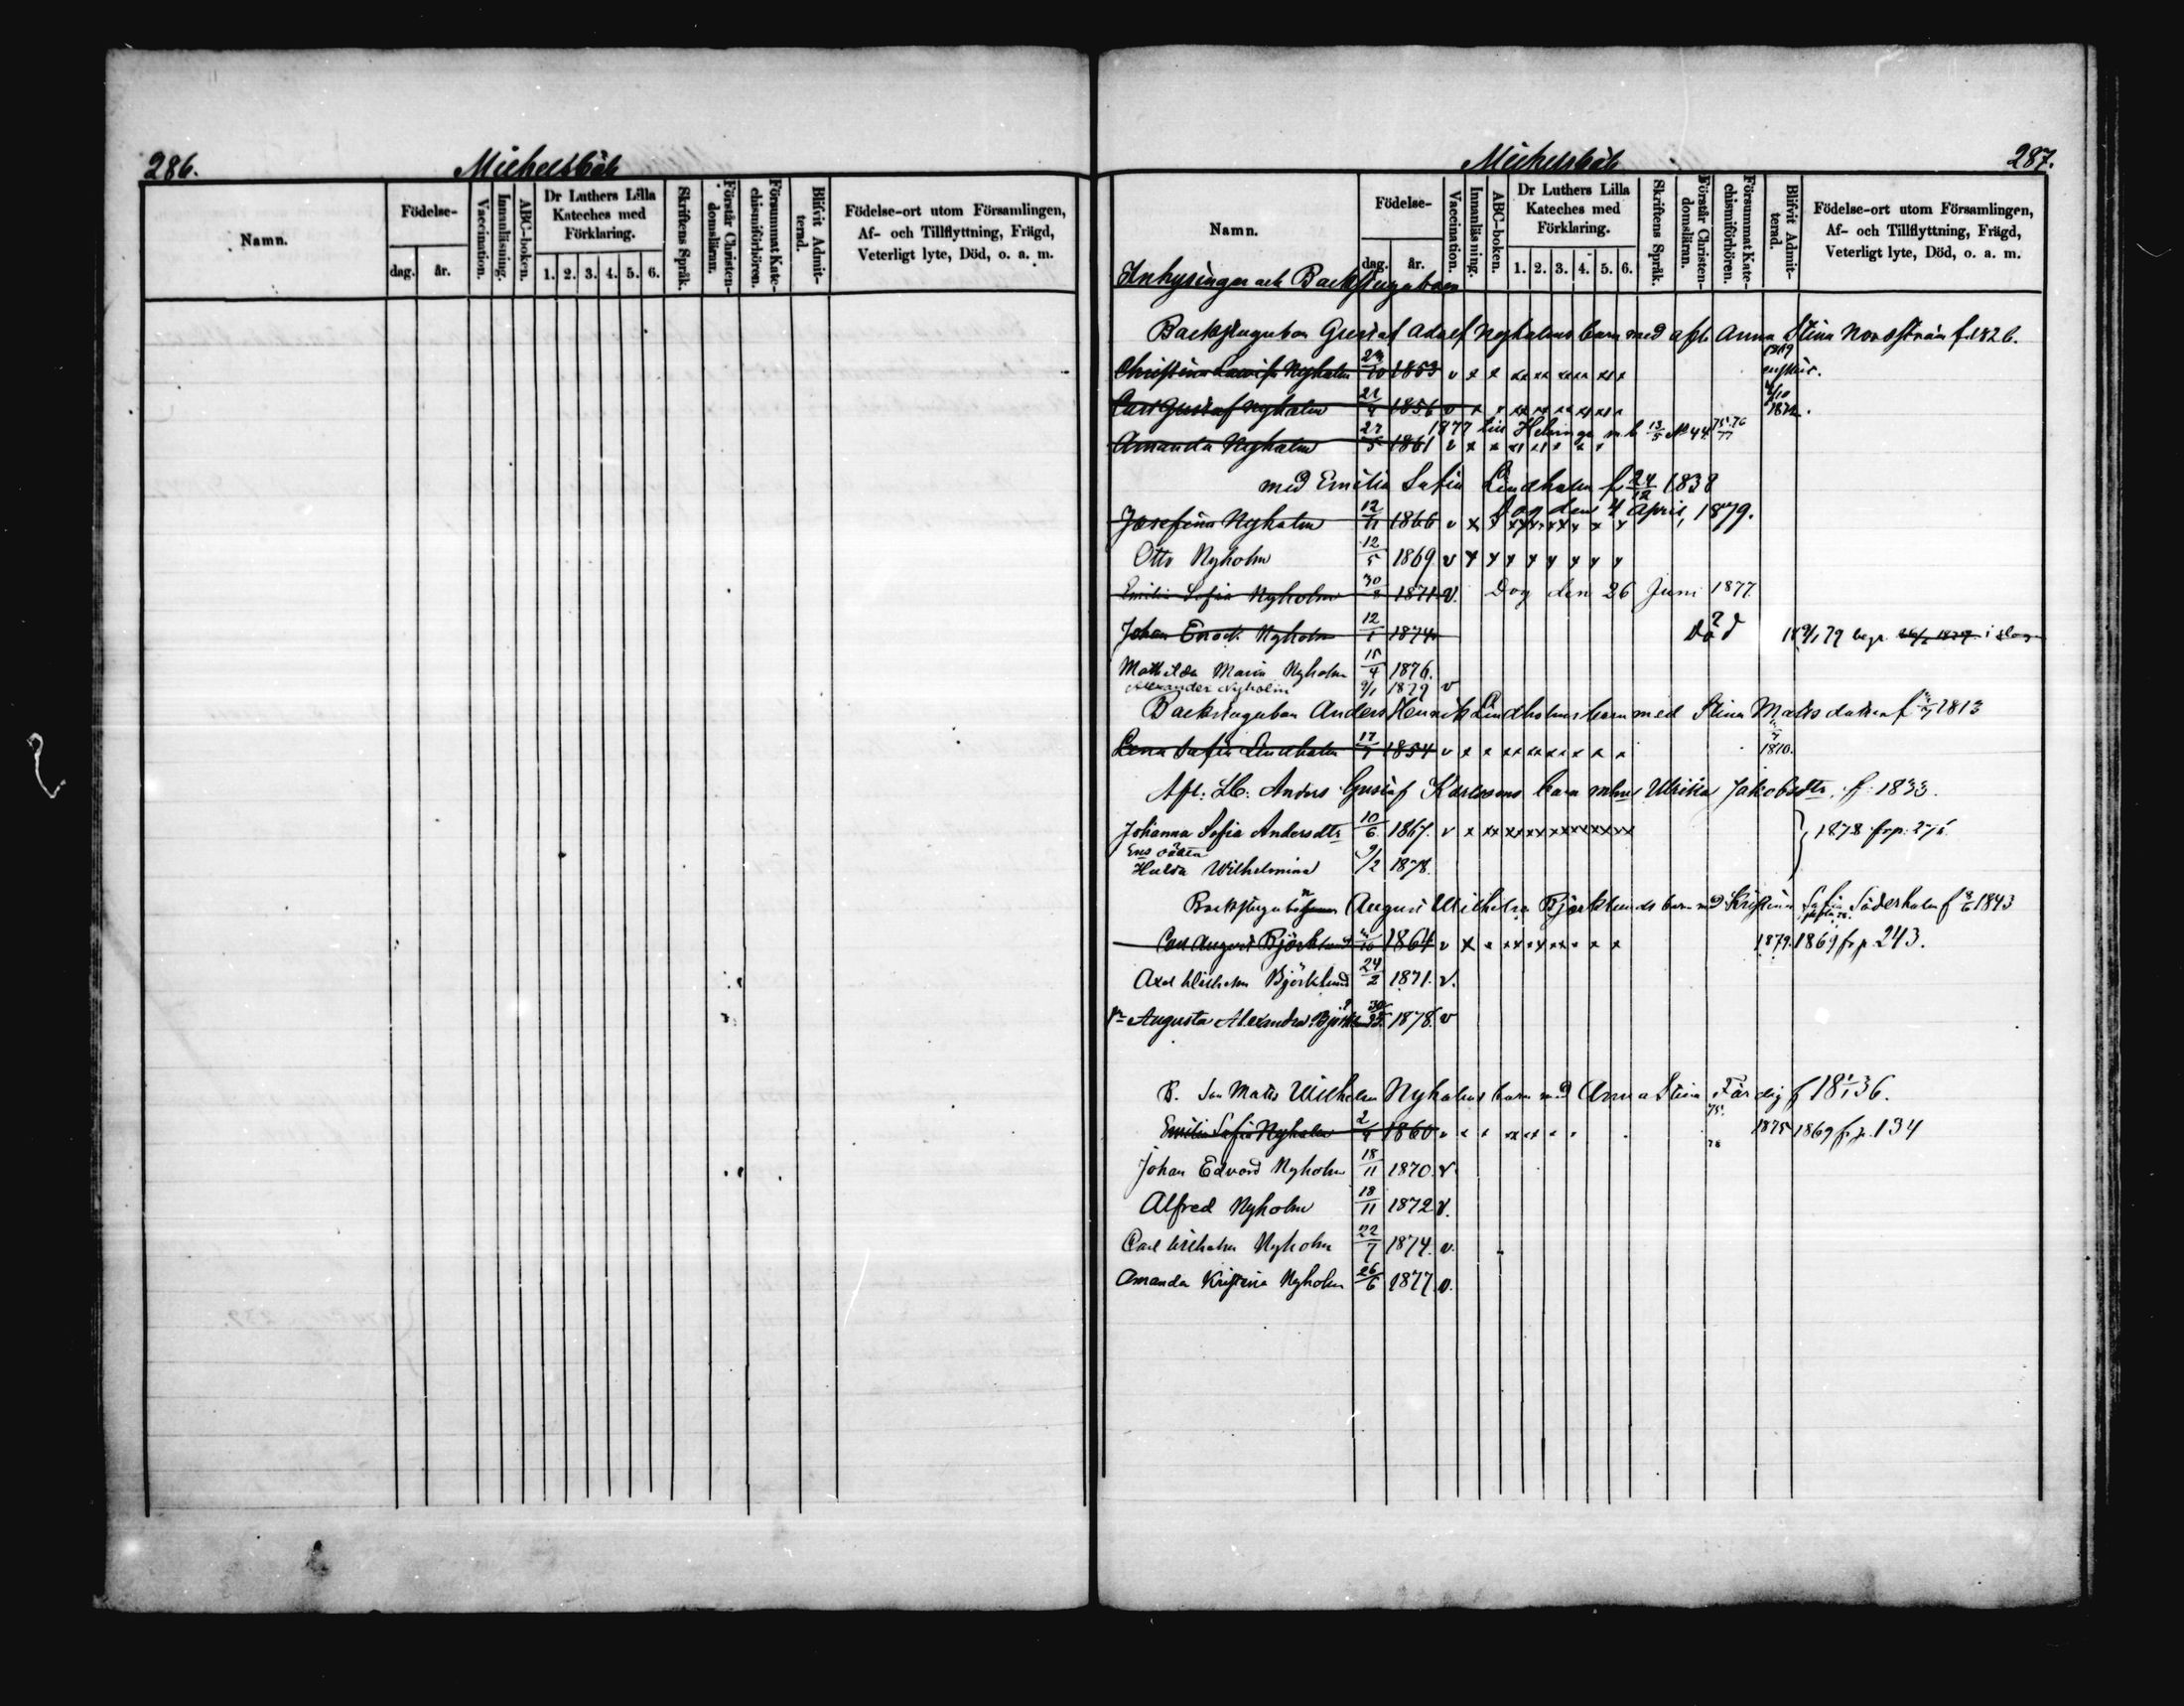 286. Michelsböle
Namn.
Födelse-
dag. år.
Vaccination.
Innanläsning.
ABC-boken.
Dr Luthers Lilla
Kateches med
Förklaring.
1. 2. 3. 4. 5. 6.
Skriftens Språk.
Förstår Christen-
domsläran.
Försummat Kate-
chismiförhören.
Blifvit Admit-
terad.
Födelse-ort utom Församlingen,
Af- och Tillflyttning, Frägd,
Veterligt lyte, Död, o. a. m.
Michelsböle 287.
Namn.
Födelse-
dag. år.
Vaccination.
Innanläsning.
ABC-boken.
Dr Luthers Lilla
Kateches med
Förklaring.
1. 2. 3. 4. 5. 6.
Skriftens Språk.
Förstår Christen-
domsläran.
Försummat Kate-
chismiförhören.
Blifvit Admit-
terad.
Födelse-ort utom Församlingen,
Af- och Tillflyttning, Frägd,
Veterligt lyte, Död, o. a. m.
Inhysingar och Backstugubarn
Backstugubon Gustaf Adolf Nyholms barn med afl. Anna Stina Norrström f. 1826.
Christina Lovisa Nyholm 1853 v x x xx xx xx xx x x
Carl Gustaf Nyholm 1856 v x x xx xx xx xx x x 1872.
1877 till Helsinge m. b. 13/5 No 44
Amanda Nyholm 27/5 1861 v x x
med Emilia Sofia Lindholm f 24/12 1838
Dog den 4 April, 1879.
Josefina Nyholm 12/11 1866 v x
Otto Nyholm 12/5 1869 v x x x x x x x x
Emilia Sofia Nyholm 1871 v. Dog den 26 Juni 1877
Johan Enock Nyholm 12/1 1874 Död
Mathilda Maria Nyholm 15/4 1876.
Alexander Nyholm 9/1 1879 v
Backstugubon Anders Henrik Lindholms barn med Stina Matsdotter f 1813
Lena Sofia Lindholm 1854 v x x xx xx x x x x 1870.
Afl: Anders Gustaf Karlssons barn Ulrika Jakobsdtr. f. 1833.
Johanna Sofia Andersdtr 10/6 1867. v x xx xx xx xx xx xx xx } 1878 frp. 276.
Ens dotter
Hulda Wilhelmina 9/2 1878.
August Wilhelm Björklunds barn md Kristina Sofia Söderholm f 8/6 1843
Carl August Björklund 1864 v x x xx xx xx x x x 1879. 1869 frp. 243.
Axel Wilhelm Björklund 24/2 1871. v.
Augusta Alexandra Björklund 1878. v
B. Mats Wilhelm Nyholms barn md Anna Stina Färdig f 18 1/1 36.
Emilia Sofia Nyholm 1860 v x x xx xx x x 1875 1869 frp. 134
Johan Edvard Nyholm 18/11 1870. v.
Alfred Nyholm 18/11 1872 v.
Carl Wilhelm Nyholm 22/7 1874. v.
Amanda Kristina Nyholm 26/6 1877. v.